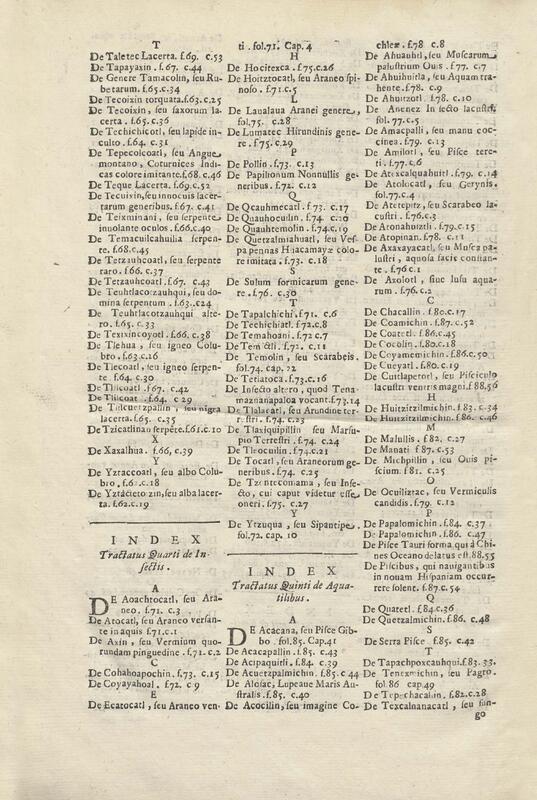 T
De Taletec Lacerta. f.69. c.53
De Tapayaxin. f.67. c.44
De Genere Tamacolin, seu Ru-
betarum. f.65.c.34
De Tecoixin torquata.f.63.c.25
De Tecoixin, seu saxorum la-
certa. f.65. c.36
De Techichicotl, seu lapide in-
culto. f.64. c.31
De Tepecolcoatl, seu Angue
montano, Coturnices Indi-
cas colore imitante.f.68. c.46
De Teque Lacerta. f.69.c.52
De Tecuixin, seu innocuis lacer-
tarum generibus. f.67. c.41
De Teixminani, seu serpente
inuolante oculos. f.66.c.40
De Temacuilcahuilia serpen-
te. f.68. c.45
De Tetzauhcoatl, seu serpente
raro. f.66. c.37
De Tetzauhcoatl. f.67. c.43
De Teuhtlacotzauhqui, seu do-
mina serpentum. f.63..c24
De Teuhtlacotzauhqui alte-
ro. f.65. c. 33
De Texixincoyotl. f.66. c.38
De Tlehua, seu igneo Colu-
bro. f.63.c.26
De Tlecoatl, seu igneo serpen-
te. f.64. c.30
De Tlilcoatl. f.67. c.42
De Tlilcoat. f.64. c 29
De Tlilcuetzpallin, seu nigra
lacerta. f.65. c.35
De Tzicatlinan serpéte.f.61.c.10
X
De Xaxalhua. f.66, c.39
Y
De Yztaccoatl, seu albo Colu-
bro. f.62.c.18
De Yztacteco zin, seu alba lacer-
ta. f.62.c.19
INDEX
Tractatus Quarti de In-
sectis.
A
DE Aoachtocatl, seu Ara-
neo. f.71. c.3
De Atocatl, seu Araneo versan-
te in aquis f.71.c.1
De Axin, seu Vermium quo-
rundam pinguedine. f.71.c.2
C
De Cohahoapochin. f.73. c.15
De Coyayahoal. f.72. c 9
E
De Ecatocatl, seu Araneo ven-
ti. fol.71. Cap.4
H
De Hocitexca. f.75.c.26
De Hoitztocatl, seu Araneo spi-
noso. f.71.c.5
L
De Laualaua Aranei genere,
fol.75. c.28
De Lumatec Hirundinis gene-
re. f.75. c.29
P
De Pollin. f.73. c.13
De Papilionum Nonnullis ge-
neribus. f.72. c.12
Q
De Qcauhmecatl. f.73. c.17
De Quauhocuilin. f.74. c.20
De Quauhtemolin. f.74.c.19
De Quetzalmiahuatl, seu Ves-
pa pennas Huacamayæ colo-
re imitata. f.73. c.18
S
De Sulum formicarum gene-
re. f.76. c.30
T
De Tapalchichi.f.71. c.6
De Techichiatl. f.72.c.8
De Temahoani. f.72 c.7
De Tem ctli. f.72. c.11
De Temolin, seu Scarabeis.
fol.74. cap.22
De Tetiatoca. f.73.c.16
De Insecto altero, quod Tena-
maznanapaloa vocant.f.73.14
De Tlalacatl, seu Arundine ter-
restri. f.74. c.23
De Tlaxiquipillin, seu Marsu-
pio Terrestri. f.74. c.24
De Tleoculin. f.74.c.21
De Tocatl, seu Araneorum ge-
neribus. f.74. c.25
De Tzonteconiama, seu Inse-
cto, cui caput videtur esse
oneri. f.75. c.27
Y
De Ytzuqua, seu Sipantipe.
fol.72. cap. 10
INDEX
Tractatus Quinti de Aqua-
tilibus.
A
DE Acacana, seu Pisce Gib-
bo. fol.85. Cap.41
De Acacapallin. f.85. c.43
De Acipaquitli. f.84. c.39
De Acuetzpalmichin. f.85. c 44
De Alosac, Lupeaue Maris Au-
stralis. f.85. c.40
De Acocilin, seu imagine Co-
chleæ. f.78 c.8
De Ahuauhtl, seu Muscarum
palustrium Ouis. f.77. c.7
De Ahuihuitla, seu Aquam tra-
hente. f.78. c.9
De Ahuitzotl. f.78. c.10
De Anenez In secto lacustri,
fol.77. c.5
De Amacpalli, seu manu coc-
cinea. f.79. c.13
De Amilotl, seu Pisce tere-
ti. f.77. c.6
De Atexcalquahuitl. f.79. c.14
De Atolocatl, seu Gerynis.
fol.77. c.4
De Atetepitz, seu Scarabeo la-
custri. f.76.c.3
De Atonahuiztli. f.79.c.15
De Atopinan. f.78. c.11
De Axaxayacatl, seu Musca pa-
lustri, aquosa facie constan-
te. f.76 c.1
De Axolotl, siue lusu aqua-
rum. f.76. c.2
C
De Chacallin. f.80.c.17
De Coamichin. f.87. c.52
De Coatetl. f.86. c.45
De Cocolin. f.80.c.18
De Coyamemichin. f.86.c.50
De Cueyatl. f.80. c.19
De Cuitlapetotl, seu Pisciculo
lacustri ventris magni.f 88,56
H
De Huitzitzilmichin. f.83. c.34
De Huitzitzilmichin. f.86. c.46
M
De Malullis. f 82. c.27
De Manati f.87. c.53
De Michpillin, seu Ouis pi-
scium. f 81. c.25
O
De Ocuiliztac, seu Vermiculis
candidis. f.79. c.12
P
De Papalomichin. f.84. c.37
De Papalomichin. f.86. c.47
De Pisce Tauri forma, quà Chi-
nes Oceano delatus est.88,55
De Piscibus, qui nauigantibus
in nouam Hispaniam occur-
rere solent. f.87. c.54
Q
De Quatetl. f 84.c.36
De Quetzalmichin. f.86. c.48
S
De Serra Pisce. f.85. c.42
T
De Tapachpoxcauhqui.f 83. 33.
De Tenezmichin, seu Pagro.
fol.86 cap.49
De Tepechacalin. f.82.c.28
De Texcalnanacatl, seu fun-
go